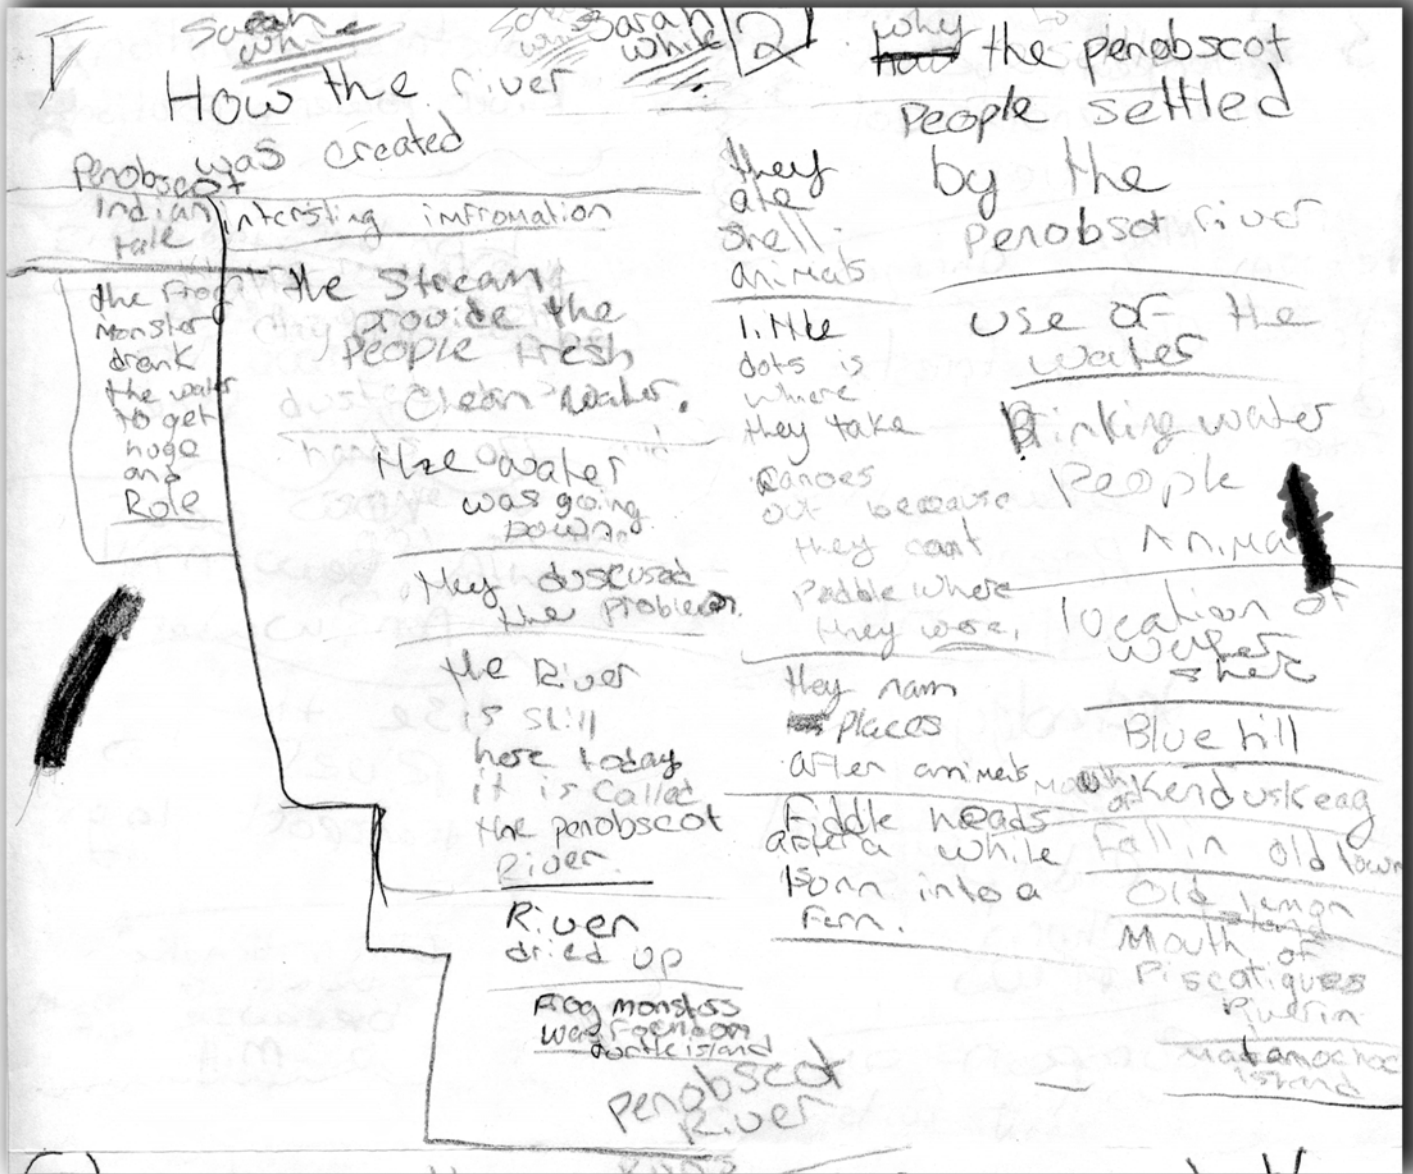 1
Sarah
White
Sarah
White
How the river
was created
Penobscot
Indian
tale
intersting imfromation
the Frog
Monster
drank
the water
to get
huge
and
Role
the Stream
provide the
People fresh
Clean water.
the water
was going
Down.
they duscused
the problem.
the River
is still
here today
it is called
the penobscot
River.
River
dried up
Frog monstss
was
turtle island
Penobscot
River
2
why
the penobscot
People settled
by the
penobsot river
they
ate
shell
animals
little
dots is
where
they take
canoes
out because
they cant
Paddle where
they were.
they nam
places
after animals
Fiddle heads
after a while
turn into a
fern.
use of the
water
Drinking water
People
Anima
location of
water
shed
Blue hill
Mouth
of Kenduskeag
Fall in old town
Old lemon
Island
Mouth of
Piscatigues
River in
Island